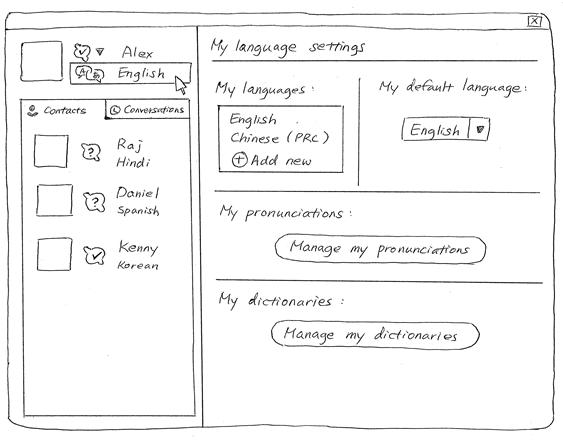 Alex
English
Contacts
Conversations
Raj
Hindi
Daniel
Spanish
Kenny
Korean
My language settings
My languages :
English
Chinese (PRC)
Add new
My default language :
English
My pronunciations :
Manage my pronunciations
My dictionaries :
Manage my dictionaries